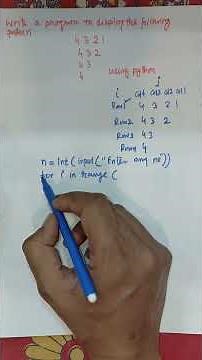 Write a program to display the following
pattern
4 3 2 1
4 3 2
4 3
4
using python
i j
col1 col2 col3 col4
Row1 4 3 2 1
Row2 4 3 2
Row3 4 3
Row4 4
n = int(input("Enter any no"))
for i in range (